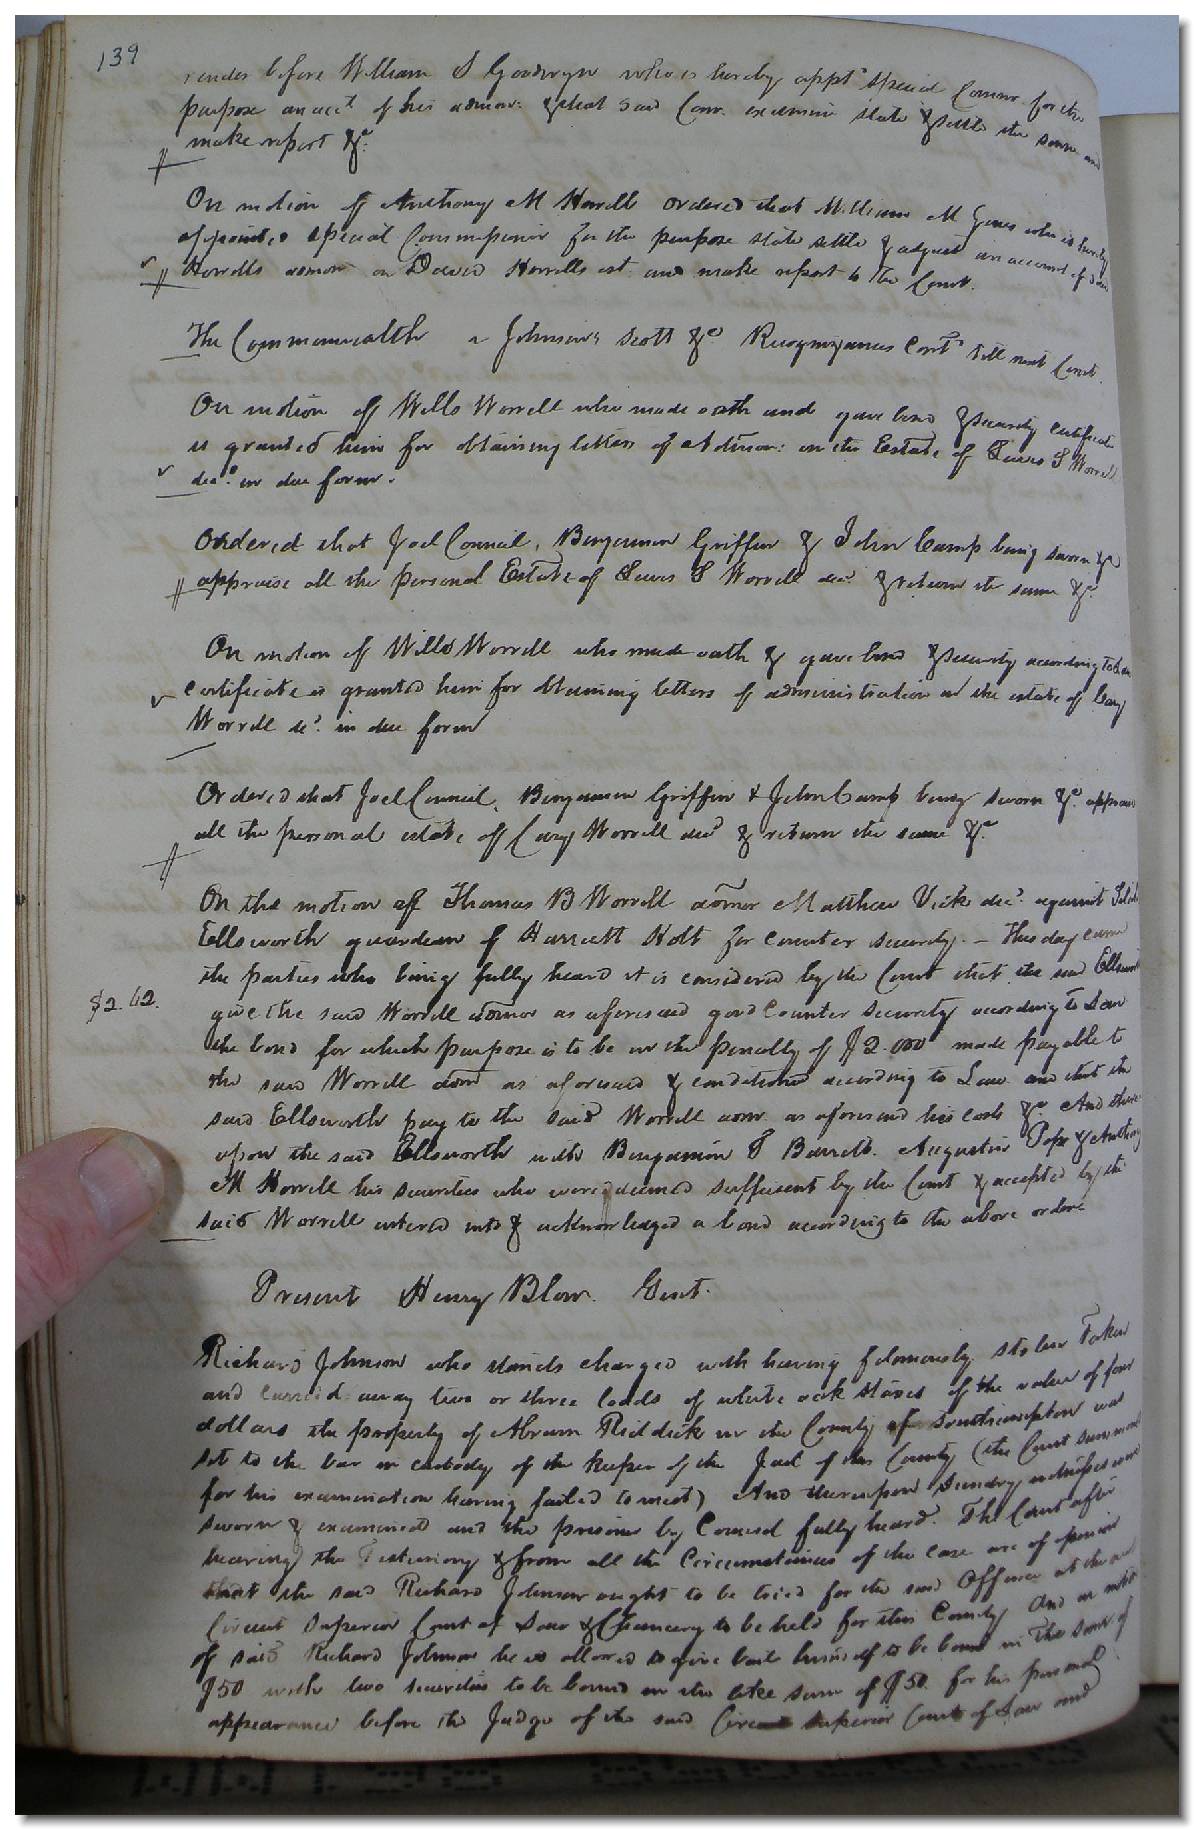 139
render before William S Goodwyn who is hereby appt special Commr for the
purpose an acct of his admon: & that said Comr. examine state & settle the same and
make report &c.
On motion of Anthony M Howell ordered that William M Jones who is hereby
appointed special Commissioner for the purpose state settle & adjust an account of said
Howells admon on David Howells est. and make report to the Court.
The Commonwealth v Johnson, Scott &c Recognizances Contd till next Court.
On motion of Wills Worrell who made oath and gave bond & security certificate
is granted him for obtaining letters of Admon: on the Estate of Lewis S Worrell
decd. in due form.
Ordered that Joel Council, Benjamin Griffin & John Camp being sworn &c
appraise all the personal Estate of Lewis S Worrell decd & return the same &c.
On motion of Wills Worrell who made oath & gave bond & security according to Law
certificate is granted him for obtaining letters of administration on the estate of Cary
Worrell decd. in due form
Ordered that Joel Council, Benjamin Griffin & John Camp being sworn &c. appraise
all the personal estate of Cary Worrell decd & return the same &c.
On the motion of Thomas B Worrell admor Matthew Vick decd. against
Ellsworth guardian of Harriett Holt for counter security. — This day came
the parties who being fully heard it is considered by the Court that the said Ellsworth
$2.62.
give the said Worrell admor as aforesaid good counter security according to Law
the bond for which purpose is to be in the penalty of $2.000 made payable to
the said Worrell admr as aforesaid & conditioned according to Law and that the
said Ellsworth pay to the said Worrell admr. as aforesaid his costs &c. And there
upon the said Ellsworth with Benjamin T Barrett. Augustin Pope & Anthony
M Howell his securities who were deemed sufficient by the Court & accepted by the
said Worrell entered into & acknowledged a bond according to the above order.
Present Henry Blow. Gent.
Richard Johnson who stands charged with having feloniously stolen Taken
and carried away two or three loads of white oak staves of the value of four
dollars the property of Abram Riddick in the County of Southampton was
set to the bar in custody of the keeper of the Jail of this County (the Court summoned
for his examination having failed to meet) And thereupon Sundry witnesses were
sworn & examined and the prisoner by Counsel fully heard. The Court after
hearing the Testimony & from all the Circumstances of the case are of opinion
that the said Richard Johnson ought to be tried for the said Offence at the next
Circuit Superior Court of Law & Chancery to be held for this County And on motion
of said Richard Johnson he is allowed to give bail himself to be bound in The sum of
$50 with two securities to be bound in the like sum of $50 for his personal
appearance before the Judge of the said Circuit Superior Court of Law and